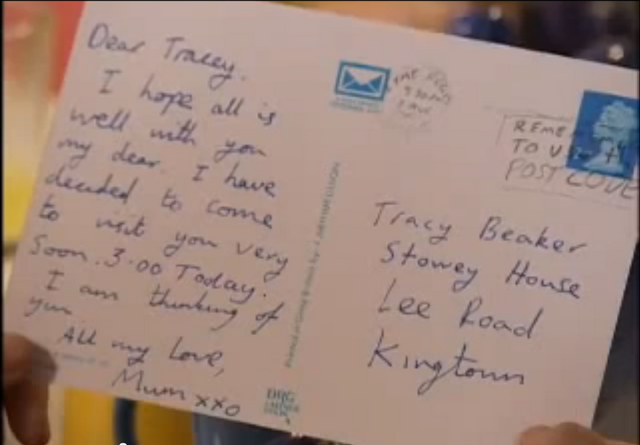 Dear Tracey.
I hope all is
well with you
my dear. I have
decided to come
to visit you very
Soon. 3.00 Today.
I am thinking of
you
All my Love,
Mum xxo
REME
TO U
POST CODE
Tracy Beaker
Stowey House
Lee Road
Kingtown